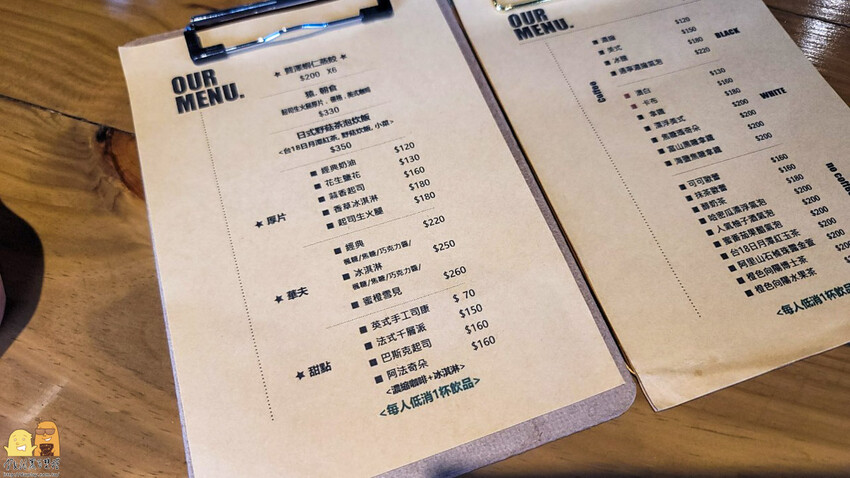 OUR
MENU.
$200 X6
$330
日式野菇茶泡炊飯
<台18日月潭紅茶, 野菇炊飯, 小菜>
$350
★ 厚片
■ 經典奶油 $120
■ 花生鹽花 $130
■ 蒜香起司 $160
■ 香草冰淇淋 $180
■ 起司生火腿 $180
★ 華夫
■ 經典 $220
楓糖/焦糖/巧克力醬/
■ 冰淇淋 $250
楓糖/焦糖/巧克力醬/
■ 蜜橙雪見 $260
★ 甜點
■ 英式手工司康 $ 70
■ 法式千層派 $150
■ 巴斯克起司 $160
■ 阿法奇朵 $160
<濃縮咖啡+冰淇淋>
<每人低消1杯飲品>
OUR
MENU.
BLACK
■ 濃縮 $120
■ 美式 $150
■ 冰釀 $180
$220
WHITE
■ 濃白 $130
■ 卡布 $160
■ 拿鐵 $180
■ 漂浮美式 $200
■ 焦糖瑪奇朵 $200
■ 富山黑糖拿鐵 $200
■ 海鹽焦糖拿鐵 $200
no coffee
■ 可可歐蕾 $160
■ 抹茶歐蕾 $160
■ 鮮奶茶 $180
■ 哈密瓜漂浮氣泡 $200
■ 人蔘柚子酒氣泡 $200
■ 蜜番茄果醋氣泡 $200
■ 台18日月潭紅玉茶 $200
■ 阿里山石棹珠露金萱 $200
■ 橙色向陽博士茶
■ 橙色向陽水果茶
<每人低消1杯飲品>